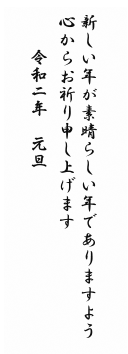 新しい年が素晴らしい年でありますよう
心からお祈り申し上げます
令和二年　元旦